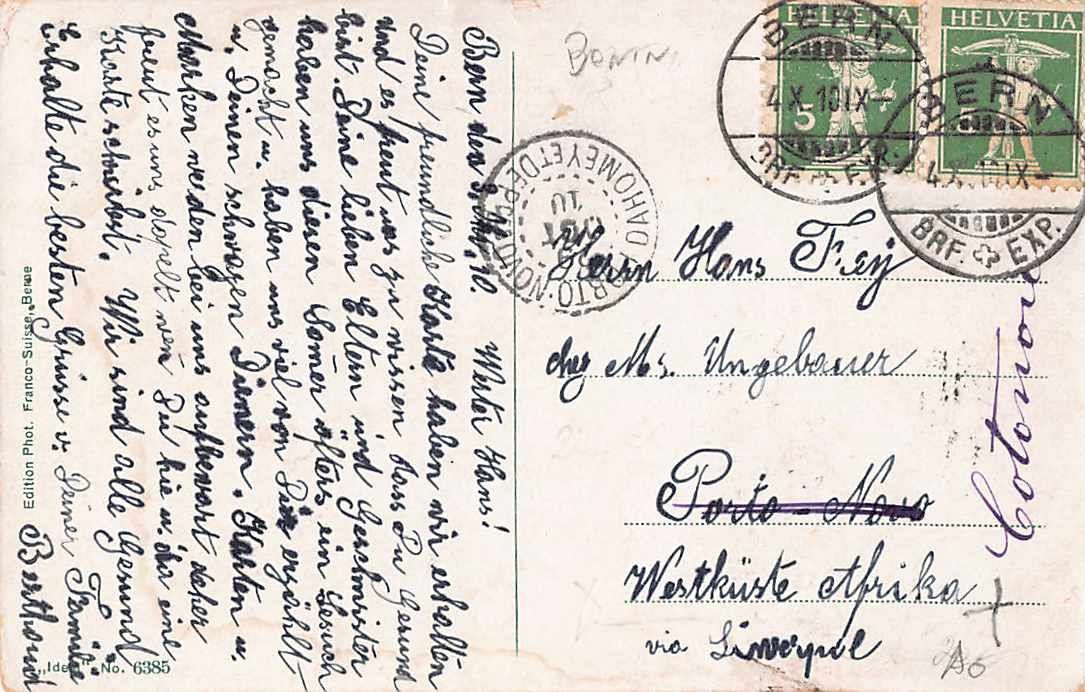 Bern den 3. Okt. 10. Werter Hans!
Deine freundliche Karte haben wir erhalten
und es freut uns zu wissen dass Du Gesund
bist. Deine lieben Eltern und Geschwister
haben uns diesen Somer öfters ein Besuch
gemacht u. haben uns viel von Dir erzählt
u. Deinen schwarzen Dienern. Karten u.
Marken werden bei uns aufbewart daher
freut es uns dopelt wen Du hie u. da eine
Karte schreibst. Wir sind alle Gesund
Erhalte die besten Grüsse v. Deiner Familie
Berthoud
Edition Phot. Franco-Suisse, Berne
„Ideal" No. 6385
BENIN
HELVETIA
5
HELVETIA
5
BERN
4.X.10.IX-
BRF. EXP.
BERN
4.X.10.IX-
BRF. EXP.
PORTO-NOVO
DAHOMEY ET DEP
OCT
10
Herrn Hans Frey
chez Ms. Ungebauer
Porto-Novo
Cotonou
Westküste Afrika
via Liwerpol